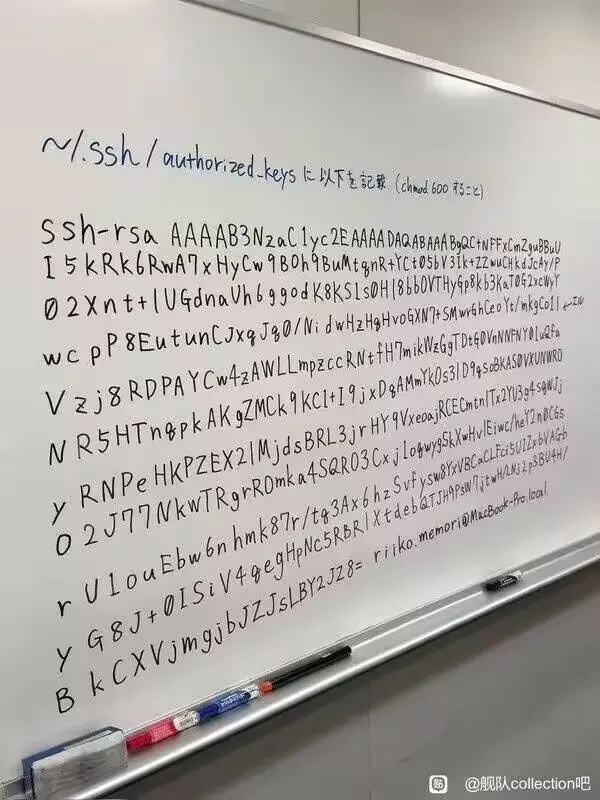 ~/.ssh/authorized_keys に以下を記載 (chmod 600 すること)
ssh-rsa AAAAB3NzaC1yc2EAAAADAQABAAABgQC+NFFxCmZguBBuU
I5kRk6RwA7xHyCw9BOh9BuMtqnR+YCt05bV3Ik+ZZwuCHkdJcAy/P
02Xnt+lUGdnaVh6ggodK8KS1s0H18bbOVTHyGp8kb3KaT0G2xcWyY
wcpP8EutunCJxqJq0/NidwHzHqHvoGXN7+SMwrGhCeoYt/mkgCo1l ←IN
Vzj8RDPAYCw4zAWLLmpzccRNtfH7mikWzGgTDtG0VnNNFNY01uQfa
NR5HTnqpkAKgZMCk9KC1+I9jxDqAMmYkOs3lD9qsoBKAS0VXUNWRO
yRNPeHKPZEX2lMjdsBRL3jrHY9VxeoajRCECmtnlTx2YU3g4sqWJj
O2J77NkwTRgrROmka4SQRO3CxjloqwygSkXwHvlEiwc/heY2n0CGs
rU1ouEbw6nhmk87r/tq3Ax6hzSvfysw8YxVBCaCLFci5UIZxbVAGb
yG8J+0ISiV4qegHpNc5RBRlXtdebQTJH9PsW7jtwH/LNj2p3BU4H/
BkCXVjmgjbJZJsLBY2JZ8= riiko.memori@MacBook-Pro.local
@舰队collection吧